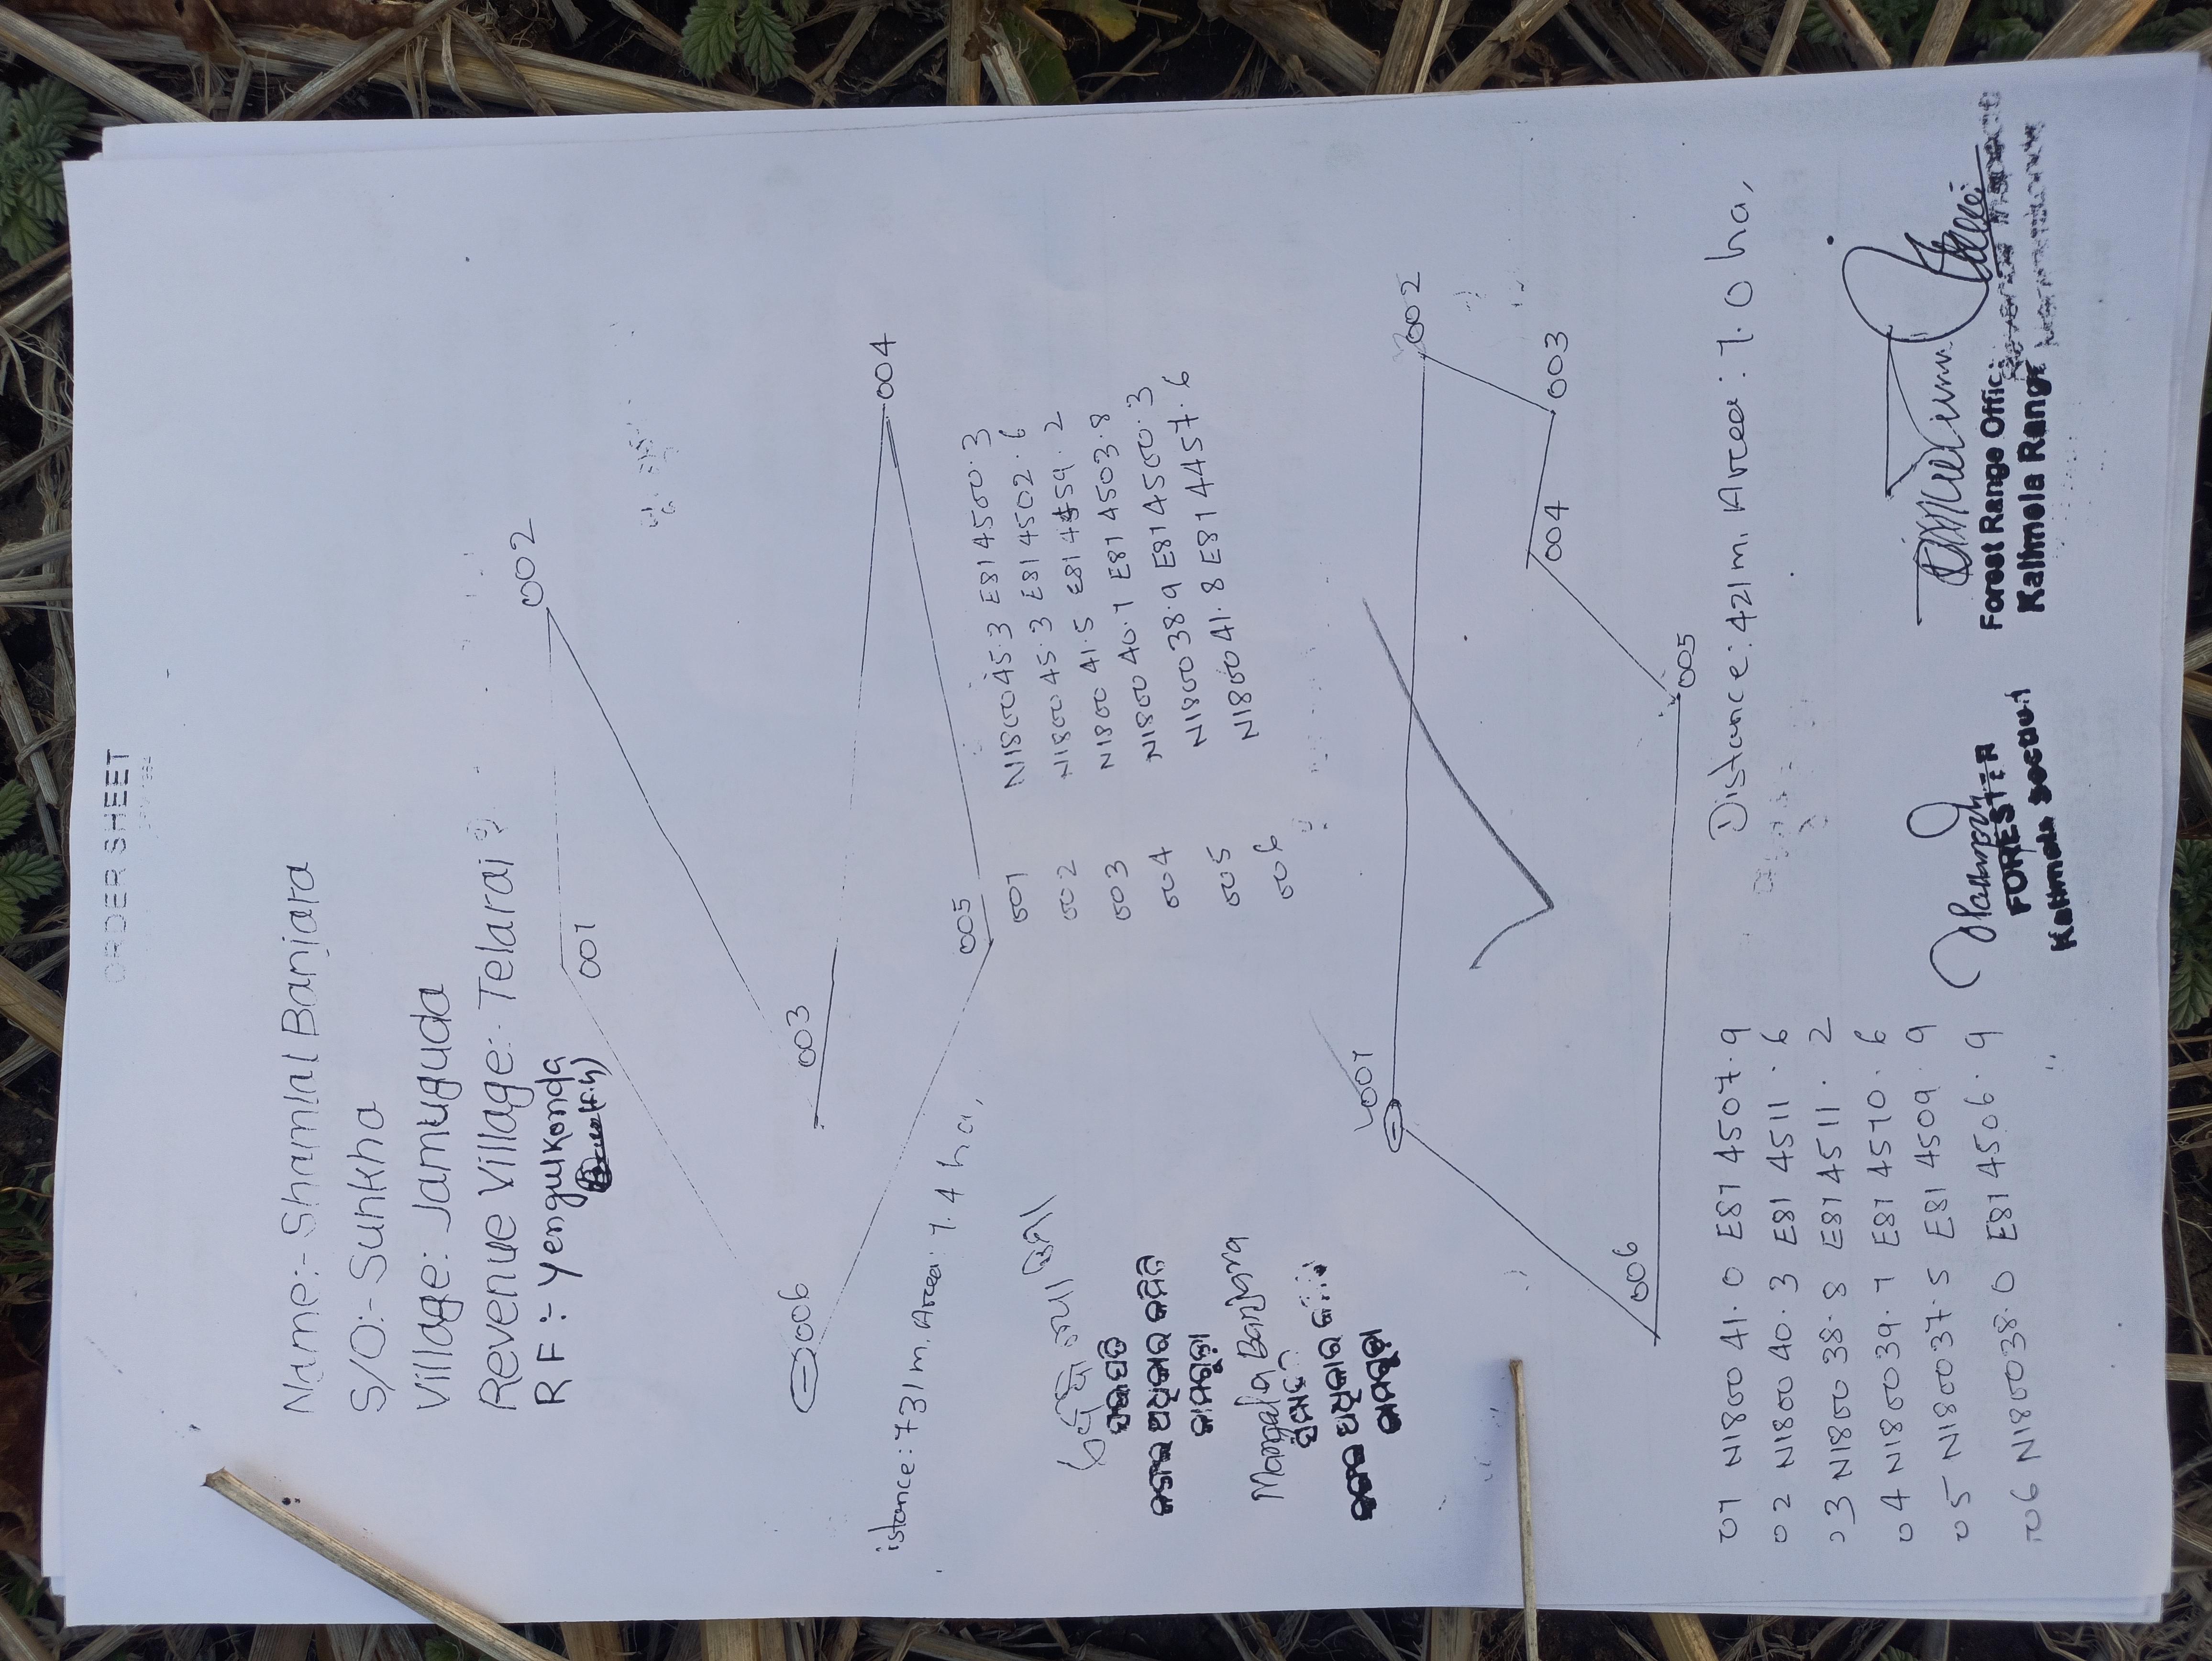 ORDER SHEET
Name:- Shamlal Banjara
S/O:- Sunkha
Village: Jamuguda
Revenue Village: Telarai
RF:- Yengulkonda
001
002
003
004
005
006
istance: 731m. Area: 1.4 ha,
001 N180045.3 E814500.3
002 N180045.3 E814502.6
003 N180041.5 E814459.2
004 N180040.1 E814503.8
005 N180038.9 E814500.3
006 N180041.8 E814457.6
ସଭାପତି
ଜଙ୍ଗଲ ଅଧିକାର କମିଟି
ଜାମଗୁଡ଼ା
Mangala Banjara
ଜଙ୍ଗଲ ଅଧିକାର
ଜାମଗୁଡ଼ା
001
002
003
004
005
006
Distance: 421m. Area: 1.0 ha,
01 N180041.0 E814507.9
02 N180040.3 E814511.6
03 N180038.8 E814511.2
04 N180039.1 E814510.6
05 N180037.5 E814509.9
06 N180038.0 E814506.9
FORESTER
Kalimela Section
Forest Range Offic
Kalimela Range